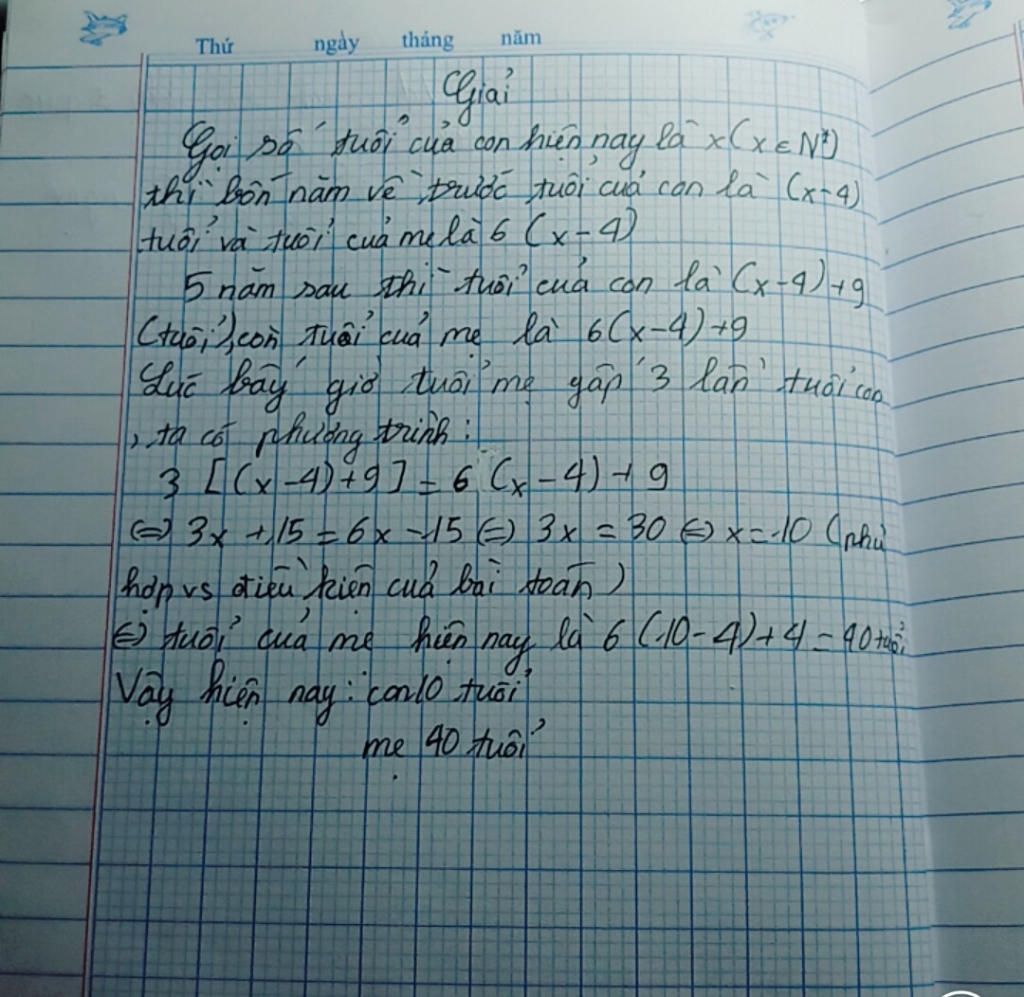 Thứ ngày tháng năm
Giải
Gọi số tuổi của con hiện nay là x (x ∈ N*)
thì bốn năm về trước tuổi của con là (x-4)
tuổi và tuổi của mẹ là 6 (x-4)
5 năm sau thì tuổi của con là (x-4)+9
(tuổi), còn tuổi của mẹ là 6(x-4)+9
Lúc bấy giờ tuổi mẹ gấp 3 lần tuổi con
, ta có phương trình:
3 [(x-4)+9] = 6 (x-4) + 9
(=) 3x + 15 = 6x - 15 (=) 3x = 30 (=) x = 10 (phù
hợp vs điều kiện của bài toán)
(=) tuổi của mẹ hiện nay là 6 (10-4)+4 = 40 tuổi
Vậy hiện nay: con 10 tuổi
mẹ 40 tuổi